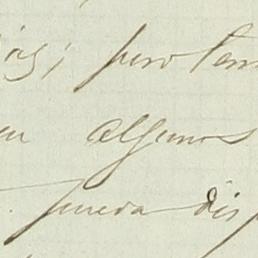 pero tam
algunos
pueda dis